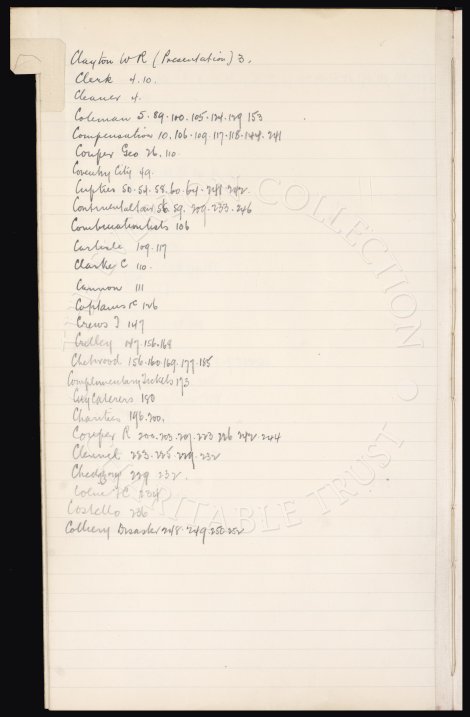 Clayton W R (Presentation) 3.
Clerk 4.10.
Cleaner 4.
Coleman 5.89.100.105.124.129 153
Compensation 10.106.109.117.118.144.241
Couper Geo 26.110.
Coventry City 49.
Cupties 50.54.58.60.64.241.242
Continental Tour 56.59.209.233.246
Combination lists 106
Carlisle 109.117
Clarke C 110.
Cannon 111
Captains 126
Crews J 147
147.156.164
Chetwood 156.160.169.177.185
Complimentary Tickets 173
City Caterers 180
Charities 196.200.
Couper R 200.203.207.223 226 242.244
Clennel 223.225 229.232
Chedgzoy 229 232.
Colne F C 234
Costello 236
Colliery Disaster 248.249.250.252
COLLECTION
CHARITABLE TRUST